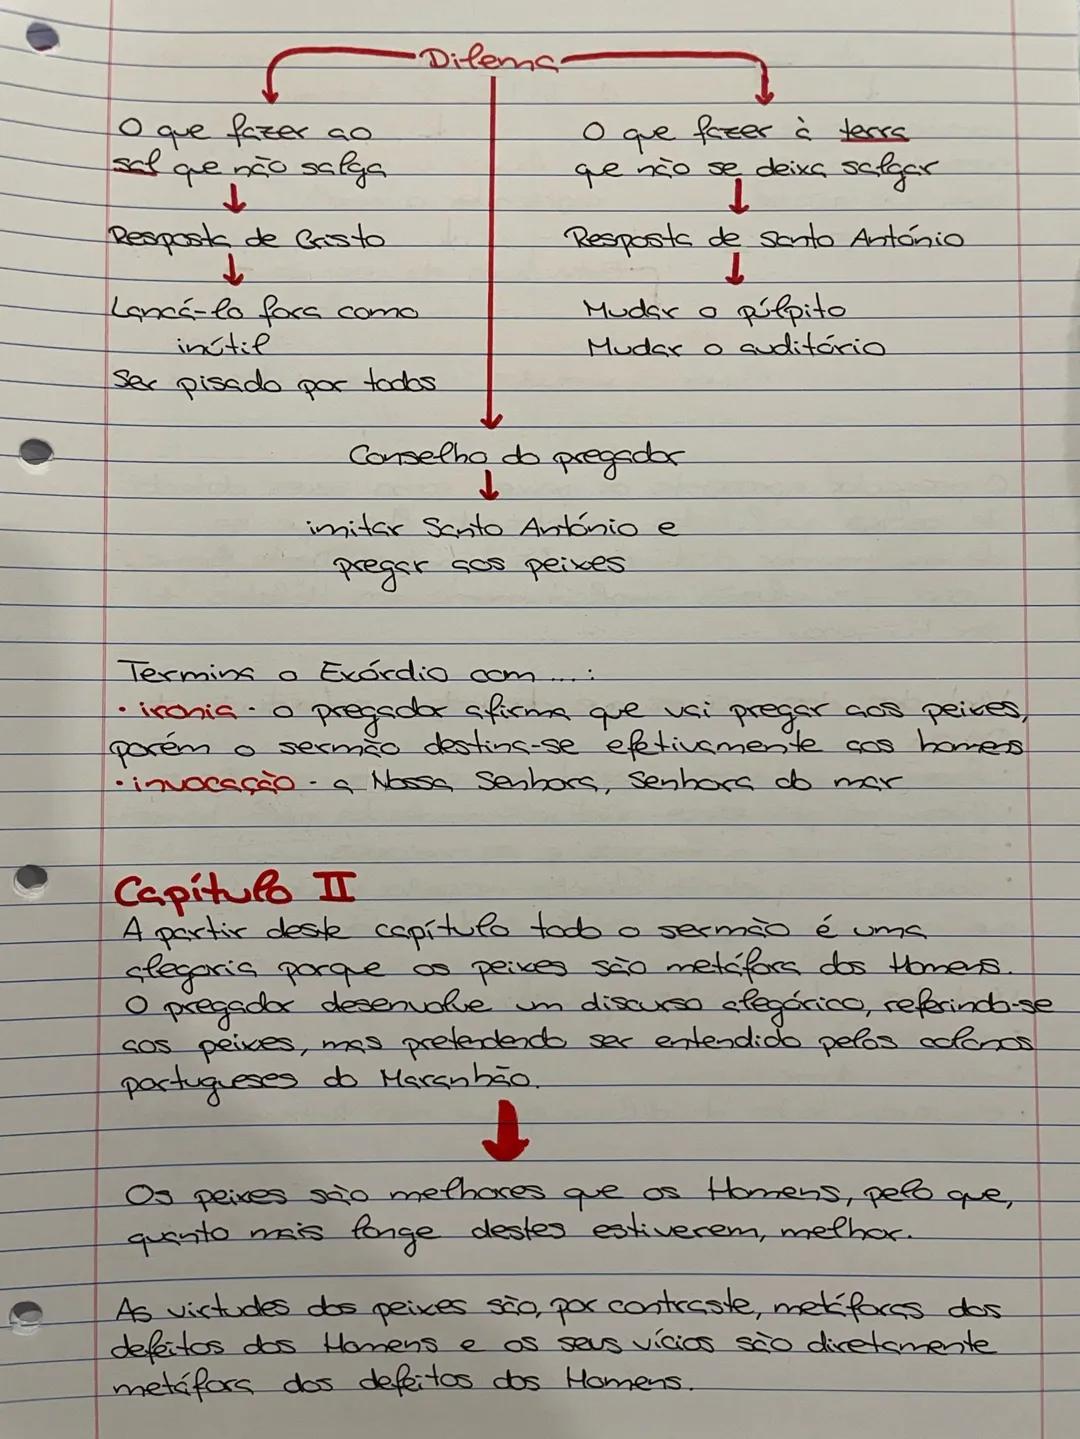 Dilema
O que fazer ao
sal que não salga
Resposta de Cristo
Lançá-lo fora como
inútil
Ser pisado por todos
O que fazer à terra
que não se deixa salgar
Resposta de Santo António
Mudar o púlpito
Mudar o auditório
Conselho do pregador
imitar Santo António e
pregar aos peixes
Termina o Exórdio com ... :
• ironia - o pregador afirma que vai pregar aos peixes,
porém o sermão destina-se efetivamente aos homens
• invocação - a Nossa Senhora, Senhora do mar
Capítulo II
A partir deste capítulo todo o sermão é uma
alegoria porque os peixes são metáfora dos Homens.
O pregador desenvolve um discurso alegórico, referindo-se
aos peixes, mas pretendendo ser entendido pelos colonos
portugueses do Maranhão.
Os peixes são melhores que os Homens, pelo que,
quanto mais longe destes estiverem, melhor.
As virtudes dos peixes são, por contraste, metáforas dos
defeitos dos Homens e os seus vícios são diretamente
metáfora dos defeitos dos Homens.